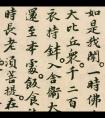 如是我聞一時佛
大比丘衆千二百
衣持鉢入舍衛大
還至本處飯食
時長老須菩提在